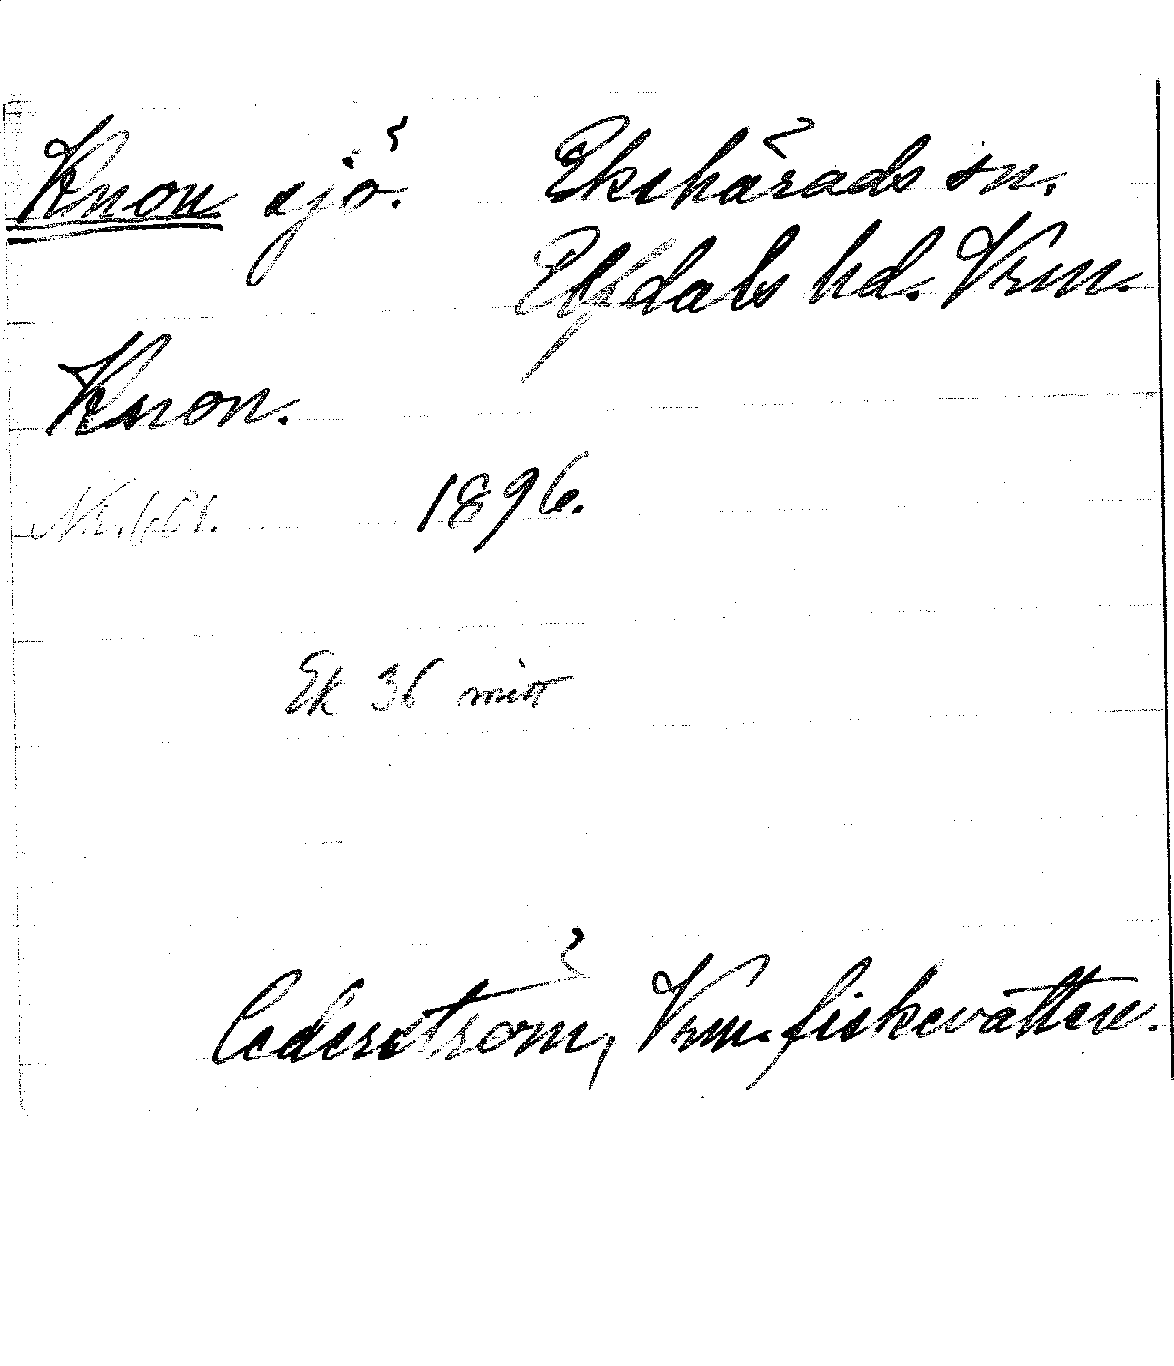 Knon sjö. Ekshärads sn.
Elfdals hd. Vrm.
Knon.
1896.
Ek 36 mitt
Cederström, Vrm. fiskevatten.